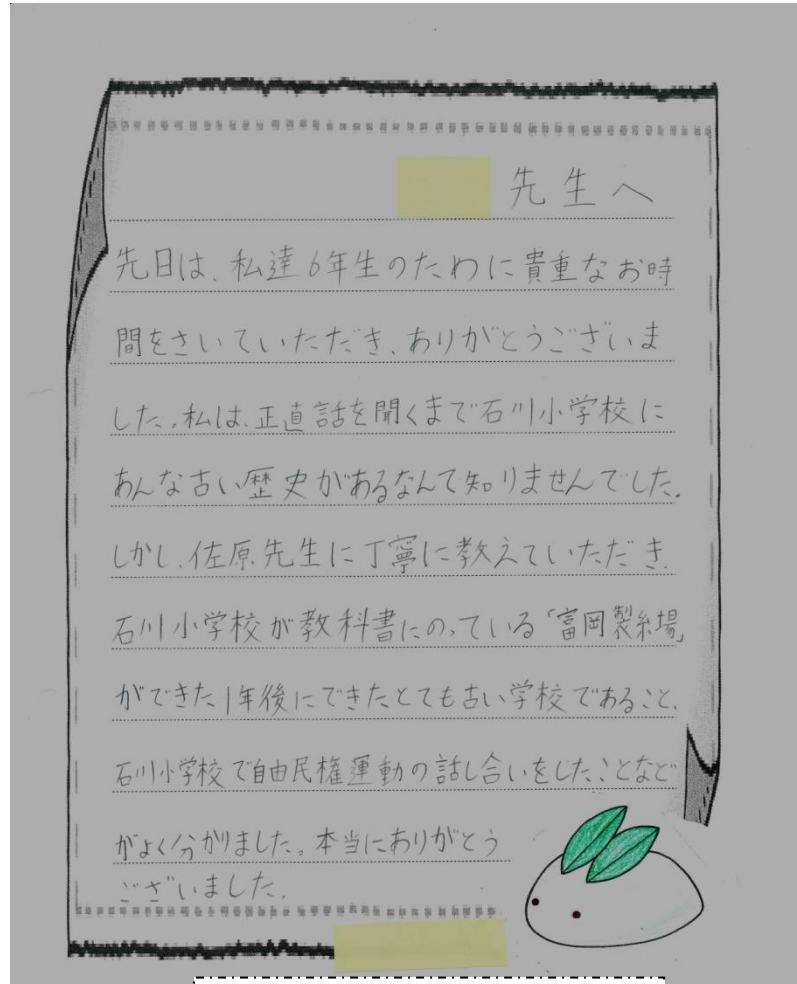 先生へ
先日は、私達6年生のために貴重なお時
間をさいていただき、ありがとうございま
した。私は、正直話を聞くまで石川小学校に
あんな古い歴史があるなんて知りませんでした。
しかし、佐原先生に丁寧に教えていただき、
石川小学校が教科書にのっている「富岡製糸場」
ができた1年後にできたとても古い学校であること、
石川小学校で自由民権運動の話し合いをしたことなど
がよく分かりました。本当にありがとう
ございました。